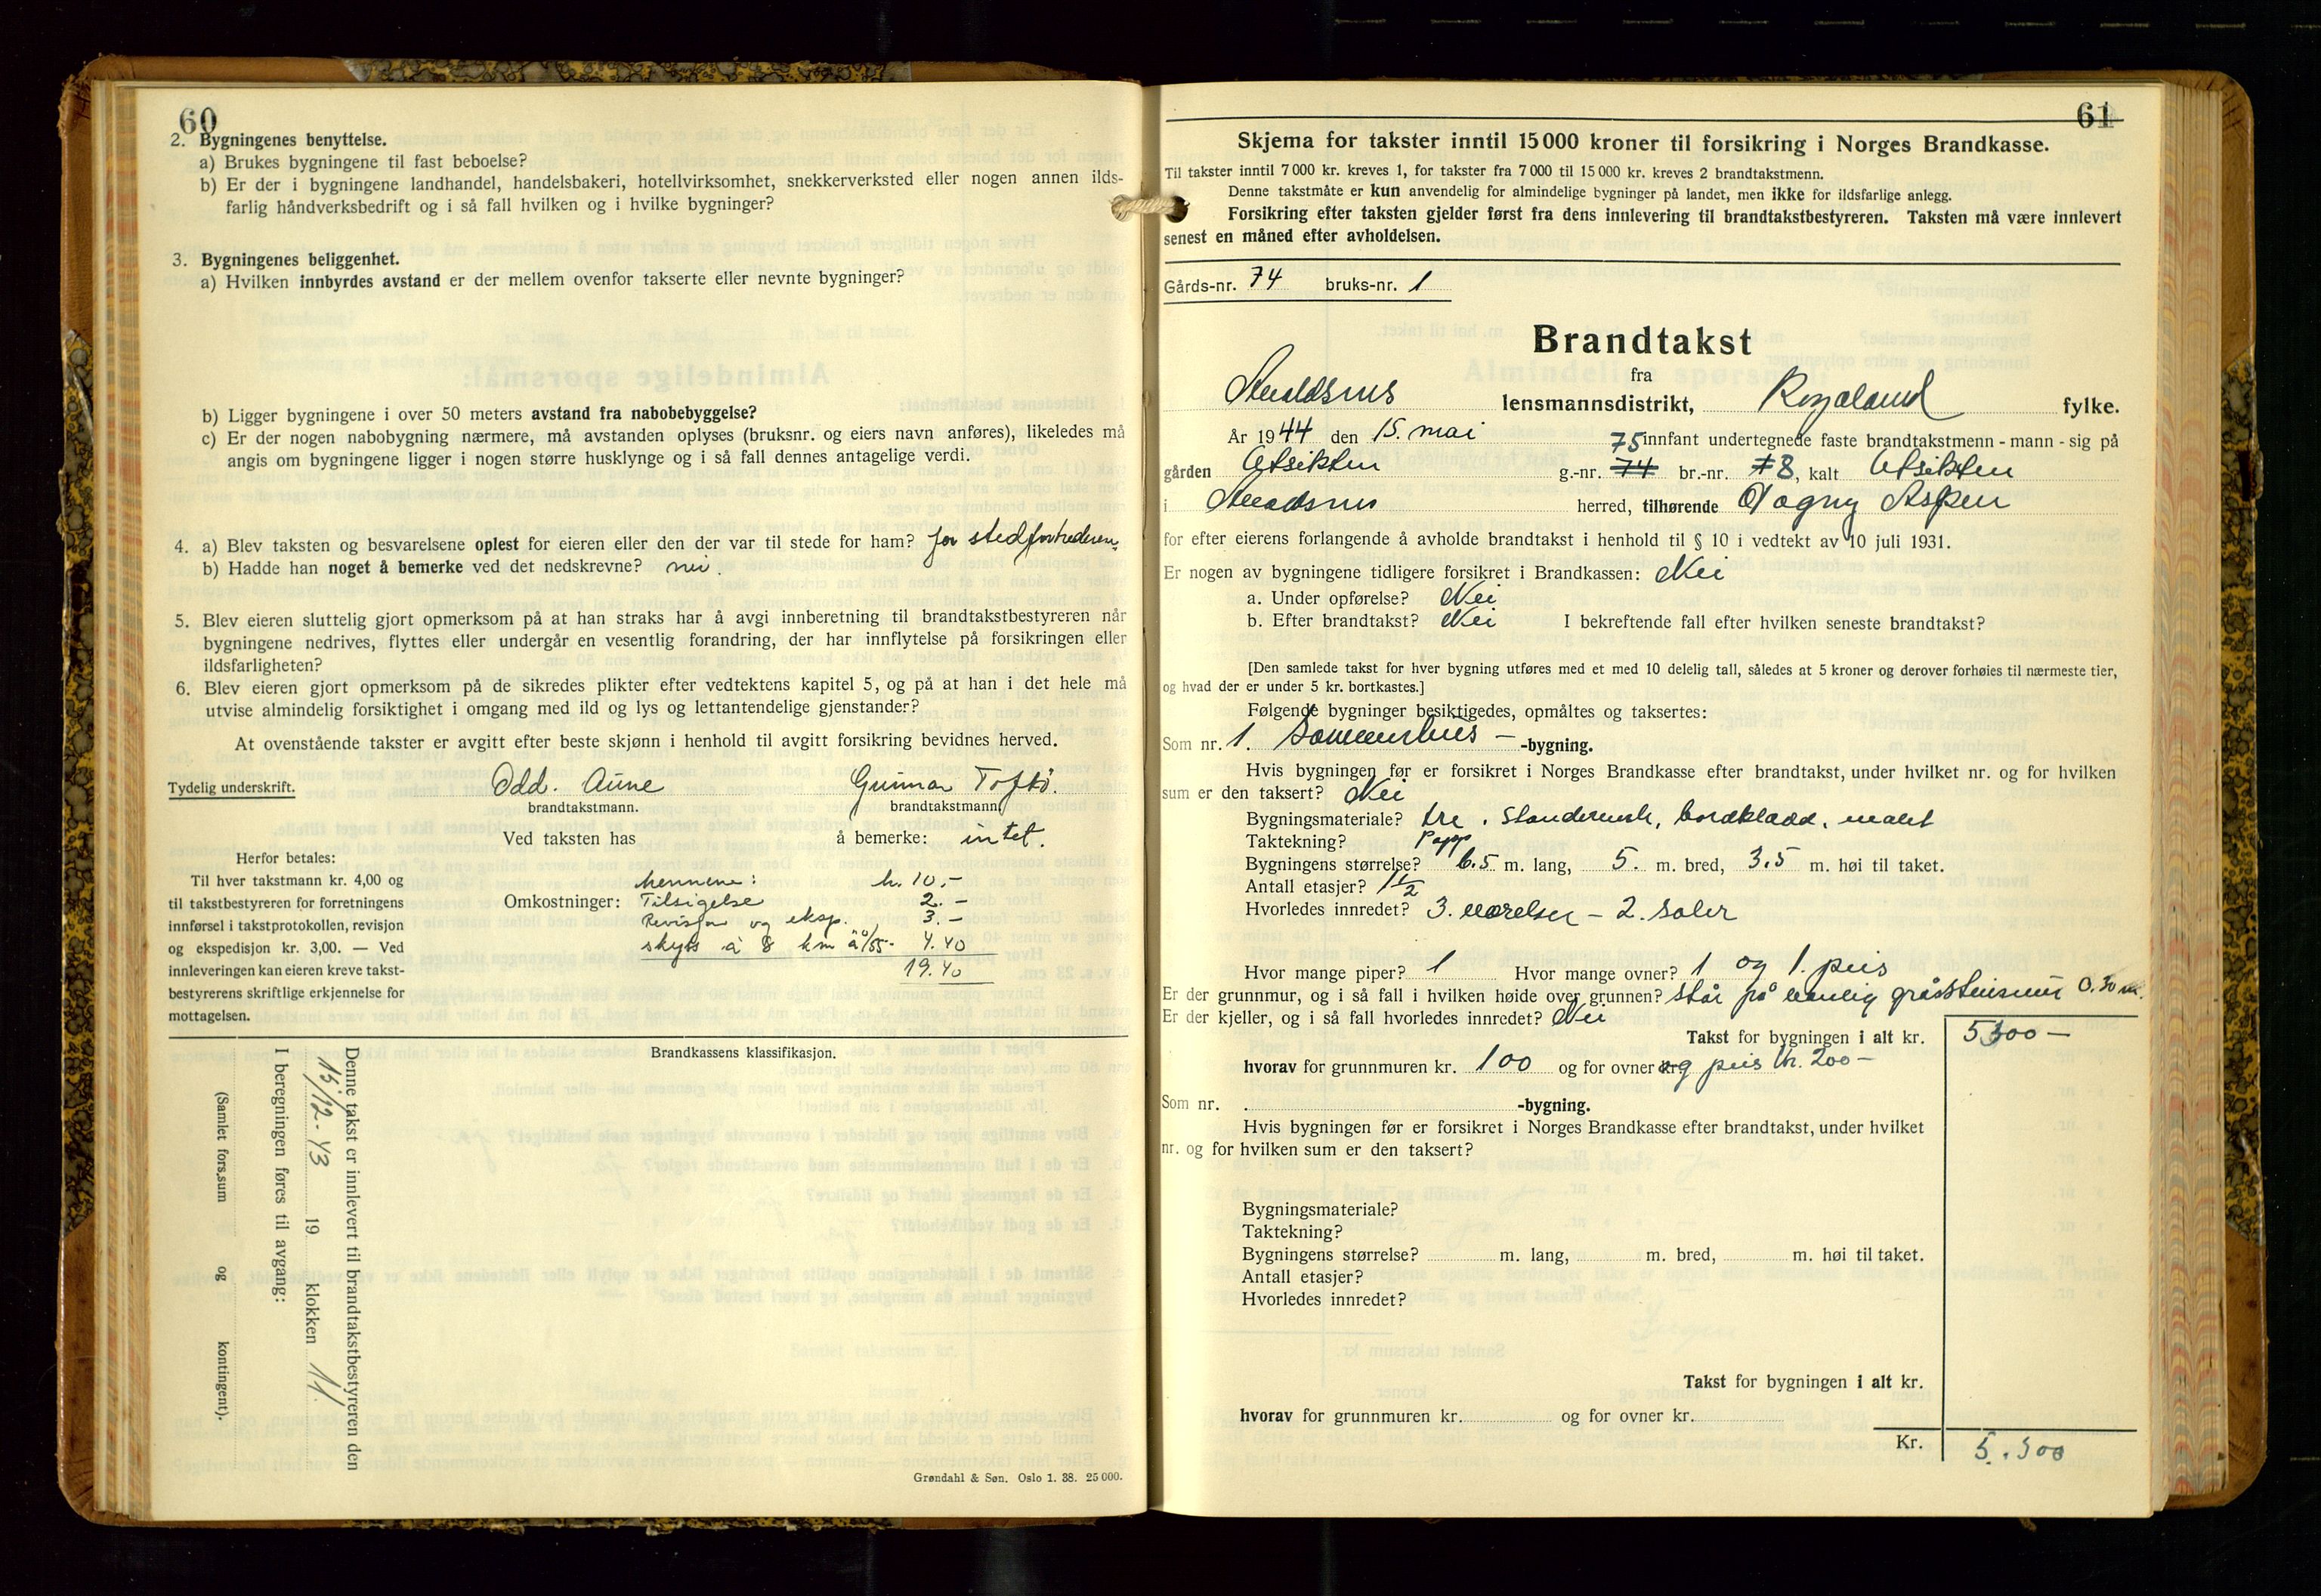 60
2. Bygningenes benyttelse.
a) Brukes bygningene til fast beboelse?
b) Er der i bygningene landhandel, handelsbakeri, hotellvirksomhet, snekkerverksted eller nogen annen ilds-
farlig håndverksbedrift og i så fall hvilken og i hvilke bygninger?
3. Bygningenes beliggenhet.
a) Hvilken innbyrdes avstand er der mellem ovenfor takserte eller nevnte bygninger?
b) Ligger bygningene i over 50 meters avstand fra nabobebyggelse?
c) Er der nogen nabobygning nærmere, må avstanden oplyses (bruksnr. og eiers navn anføres), likeledes må
angis om bygningene ligger i nogen større husklynge og i så fall dennes antagelige verdi.
4. a) Blev taksten og besvarelsene oplest for eieren eller den der var til stede for ham? for
b) Hadde han noget å bemerke ved det nedskrevne? nei.
5. Blev eieren sluttelig gjort opmerksom på at han straks har å avgi innberetning til brandtakstbestyreren når
bygningene nedrives, flyttes eller undergår en vesentlig forandring, der har innflytelse på forsikringen eller
ildsfarligheten?
6. Blev eieren gjort opmerksom på de sikredes plikter efter vedtektens kapitel 5, og på at han i det hele må
utvise almindelig forsiktighet i omgang med ild og lys og lettantendelige gjenstander?
At ovenstående takster er avgitt efter beste skjønn i henhold til avgitt forsikring bevidnes herved.
Tydelig underskrift. Odd. Aune Gunnar Toftø.
brandtakstmann. brandtakstmann
Ved taksten has å bemerke: intet.
Herfor betales:
Til hver takstmann kr. 4,00 og
til takstbestyreren for forretningens
innførsel i takstprotokollen, revisjon
og ekspedisjon kr. 3,00. — Ved
innleveringen kan eieren kreve takst-
bestyrerens skriftlige erkjennelse for
mottagelsen.
mennene: kr. 10.-
Omkostninger: Tilsigelse 2.-
Revisjon og eksp. 3.-
skyss à 8 km à 0/55- 4.40
19.40
Brandkassens klassifikasjon.
Denne takst er innlevert til brandtakstbestyreren den
15/12-43 19 klokken 11
I beregningen føres til avgang:
(Samlet fors.sum og kontingent).
Grøndahl & Søn. Oslo 1. 38. 25 000.
61
Skjema for takster inntil 15 000 kroner til forsikring i Norges Brandkasse.
Til takster inntil 7 000 kr. kreves 1, for takster fra 7 000 til 15 000 kr. kreves 2 brandtakstmenn.
Denne takstmåte er kun anvendelig for almindelige bygninger på landet, men ikke for ildsfarlige anlegg.
Forsikring efter taksten gjelder først fra dens innlevering til brandtakstbestyreren. Taksten må være innlevert
senest en måned efter avholdelsen.
Gårds-nr. 74 bruks-nr. 1
Brandtakst
fra
lensmannsdistrikt, Rogaland fylke.
År 1944 den 15. mai innfant undertegnede faste brandtakstmenn - mann - sig på
gården Utsikten g.-nr. 74 75 br.-nr. 8, kalt Utsikten
i herred, tilhørende Dagny Aspen
for efter eierens forlangende å avholde brandtakst i henhold til § 10 i vedtekt av 10 juli 1931.
Er nogen av bygningene tidligere forsikret i Brandkassen: Nei
a. Under opførelse? Nei
b. Efter brandtakst? Nei I bekreftende fall efter hvilken seneste brandtakst?
[Den samlede takst for hver bygning utføres med et med 10 delelig tall, således at 5 kroner og derover forhøies til nærmeste tier,
og hvad der er under 5 kr. bortkastes.]
Følgende bygninger besiktigedes, opmåltes og taksertes:
Som nr. 1. Sommerhus - -bygning.
Hvis bygningen før er forsikret i Norges Brandkasse efter brandtakst, under hvilket nr. og for hvilken
sum er den taksert? Nei
Bygningsmateriale? tre. Standerverk, bordkledd, malt
Taktekning? Papp
Bygningens størrelse? 6.5 m. lang, 5. m. bred, 3.5 m. høi til taket.
Antall etasjer? 1 1/2
Hvorledes innredet? 3. værelser - 2. saler
Hvor mange piper? 1 Hvor mange ovner? 1 og 1. peis
Er der grunnmur, og i så fall i hvilken høide over grunnen? står på vanlig gråsteinsmur 0.30 m.
Er der kjeller, og i så fall hvorledes innredet? Nei
Takst for bygningen i alt kr. 5300 —
hvorav for grunnmuren kr. 100 og for ovner kr. og peis kr. 200 —
Som nr. -bygning.
Hvis bygningen før er forsikret i Norges Brandkasse efter brandtakst, under hvilket
nr. og for hvilken sum er den taksert?
Bygningsmateriale?
Taktekning?
Bygningens størrelse? m. lang, m. bred, m. høi til taket.
Antall etasjer?
Hvorledes innredet?
Takst for bygningen i alt kr.
hvorav for grunnmuren kr. og for ovner kr.
Kr. 5.300